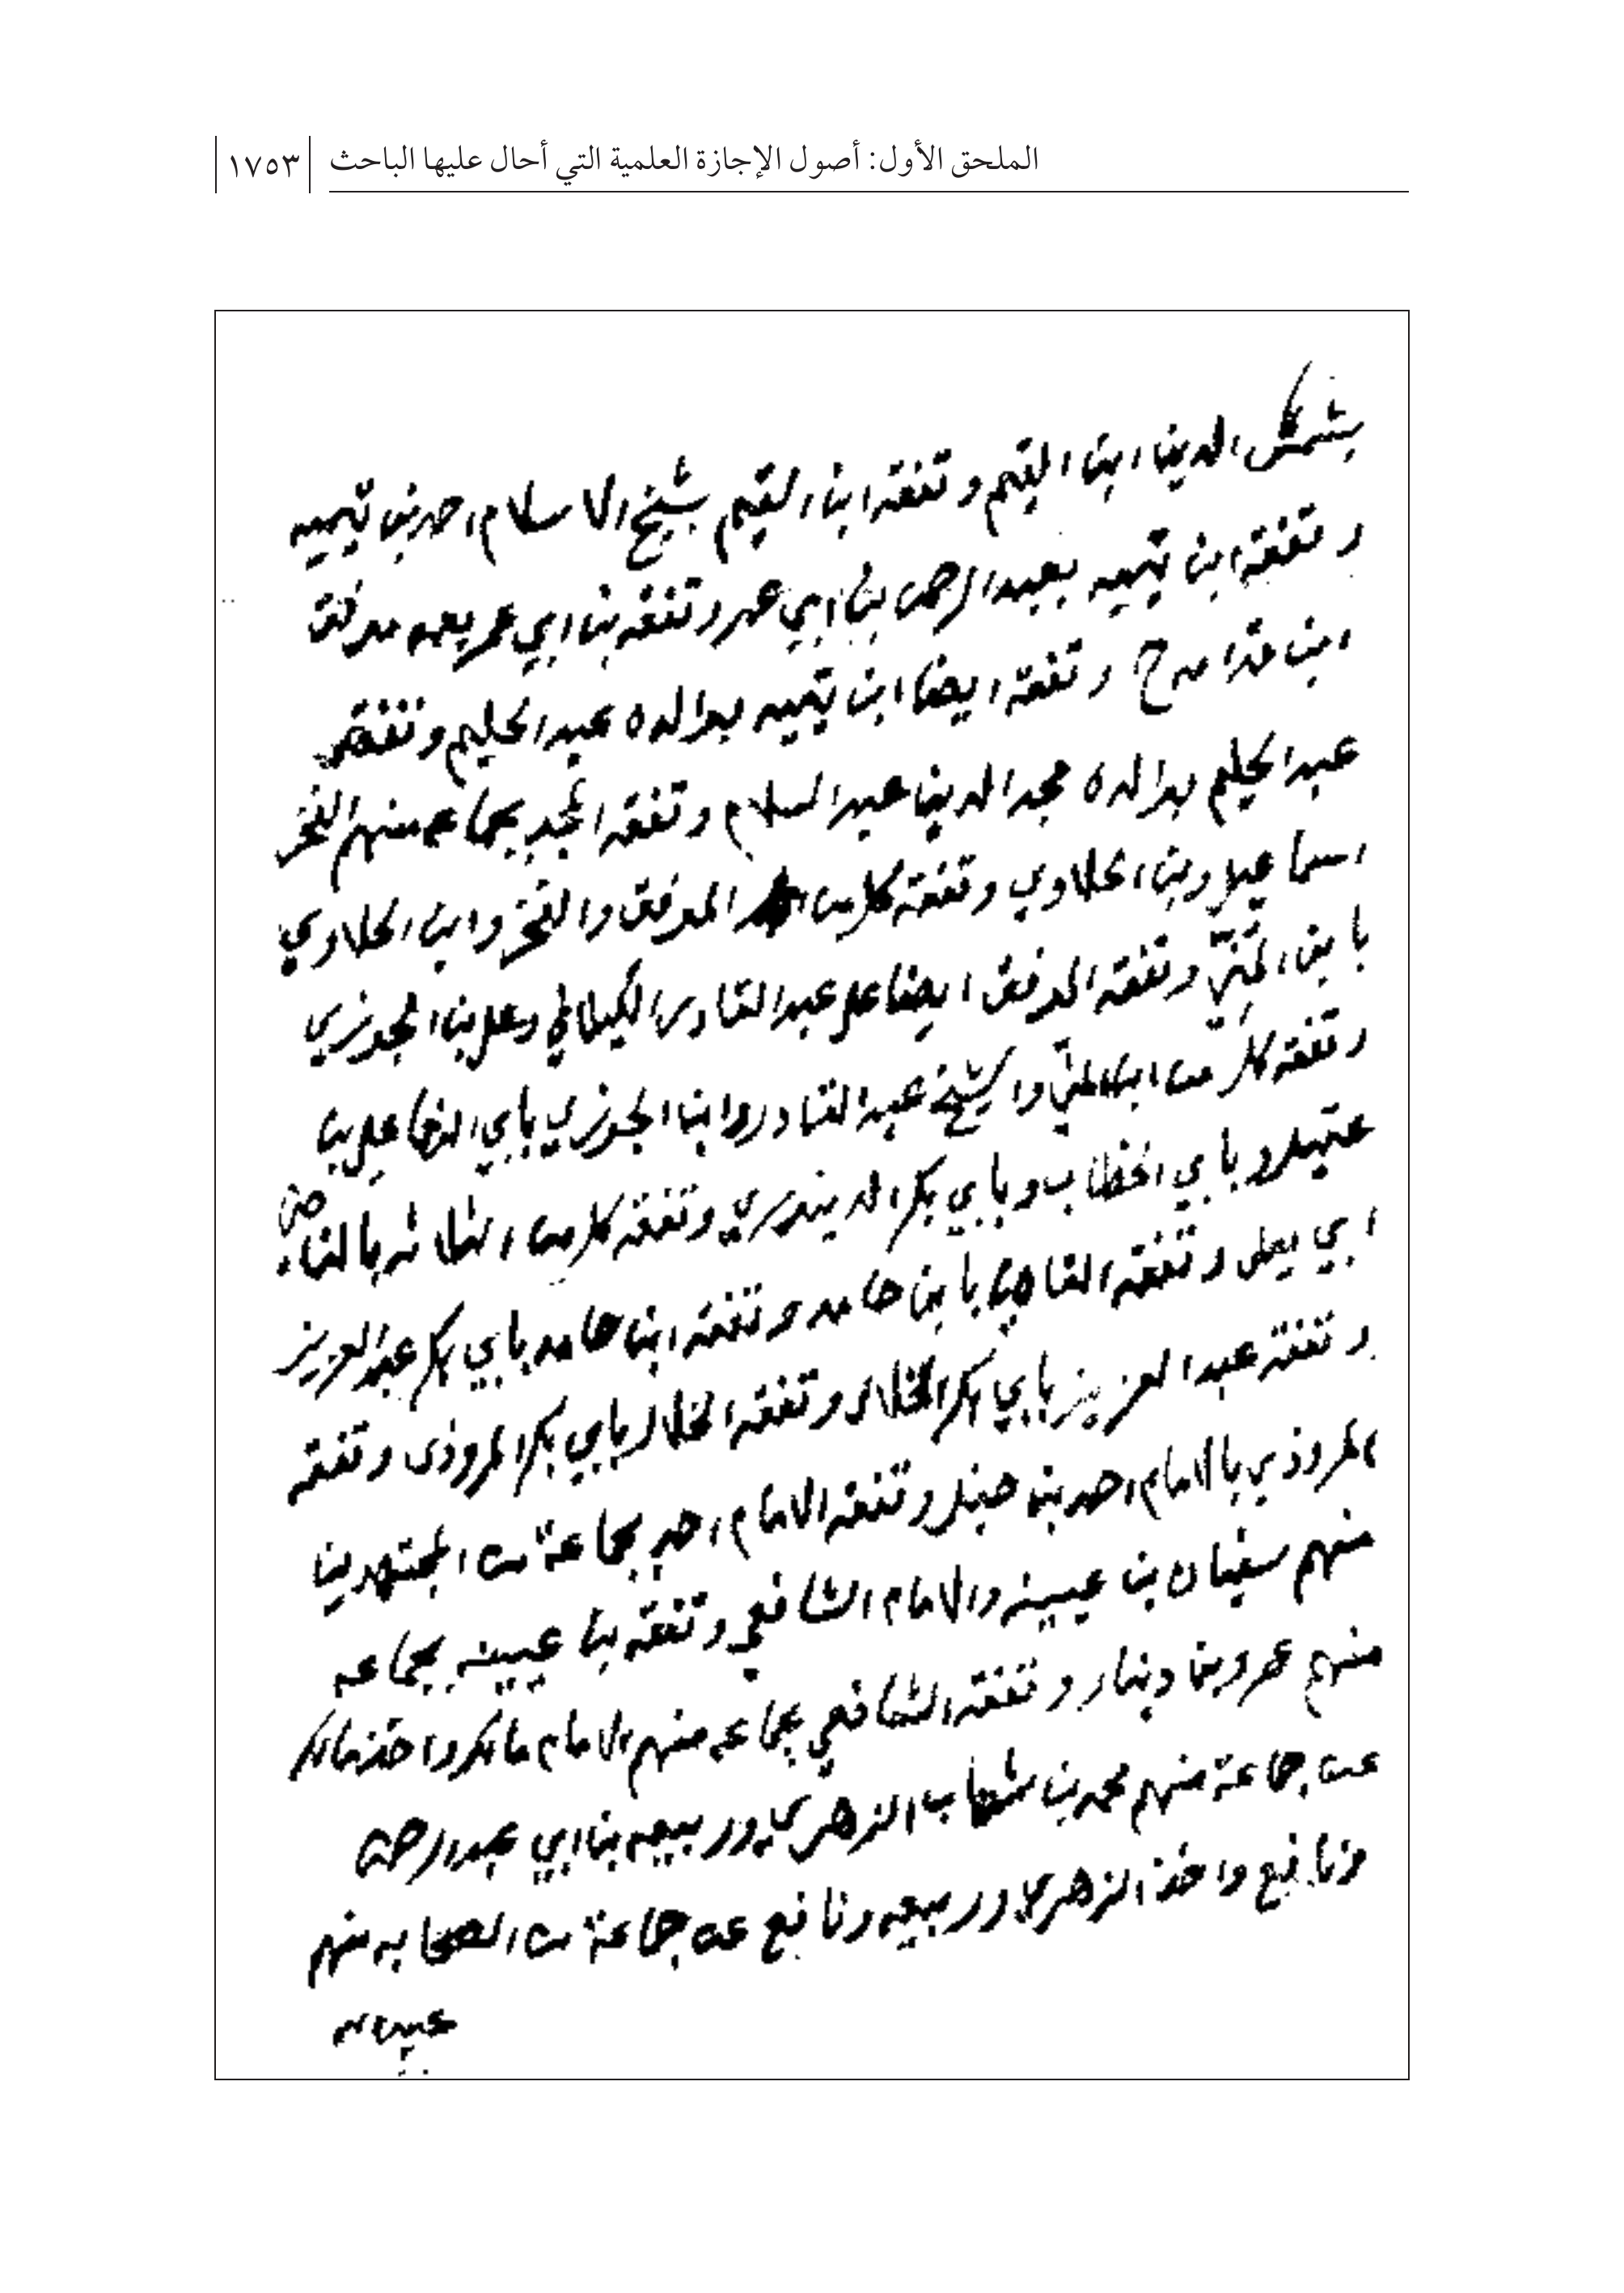 الملحق الأول: أصول الإجازة العلمية التي أحال عليها الباحث ١٧٥٣
بشمس الدين ابن القيم وتفقه ابن القيم بشيخ الاسلام احمد بن تيميه
وتفقه ابن تيميه بعبد الرحمن بن ابي عمر وتفقه بن ابي عمر بعمه موفق
ابن قدامه ح وتفقه ايضا ابن تيميه بوالده عبد الحليم وتفقه
عبد الحليم بوالده مجد الدين عبد السلام وتفقه المجد بجماعه منهم الفخر
اسماعيل وبن الحلاوي وتفقه كلا من الموفق والفخر وابن الحلاوي
بابن المني وتفقه الموفق ايضا على عبد القادر الكيلاني وعلى بن الجوزي
وتفقه كلا من ابن المني والشيخ عبد القادر وابن الجوزي بابي الوفا علي بن
عقيل وبابي الخطاب وبابي بكر الدينوري وتفقه كلا من الثلاثه بالقاضي
ابي يعلى وتفقه القاضي بابن حامد وتفقه ابن حامد بابي بكر عبد العزيز
وتفقه عبد العزيز بابي بكر الخلال وتفقه الخلال بابي بكر المروذى وتفقه
المروذي بالامام احمد بن حنبل وتفقه الامام احمد بجماعة من المجتهدين
منهم سفيان بن عيينه والامام الشافعي وتفقه بن عيينه بجماعه
منهم عمرو بن دينار وتفقه الشافعي بجماعه منهم الامام مالك واخذ مالك
عن جماعة منهم محمد بن شهاب الزهري وربيعه بن ابي عبد الرحمن
ونافع واخذ الزهري وربيعه ونافع عن جماعة من الصحابه منهم